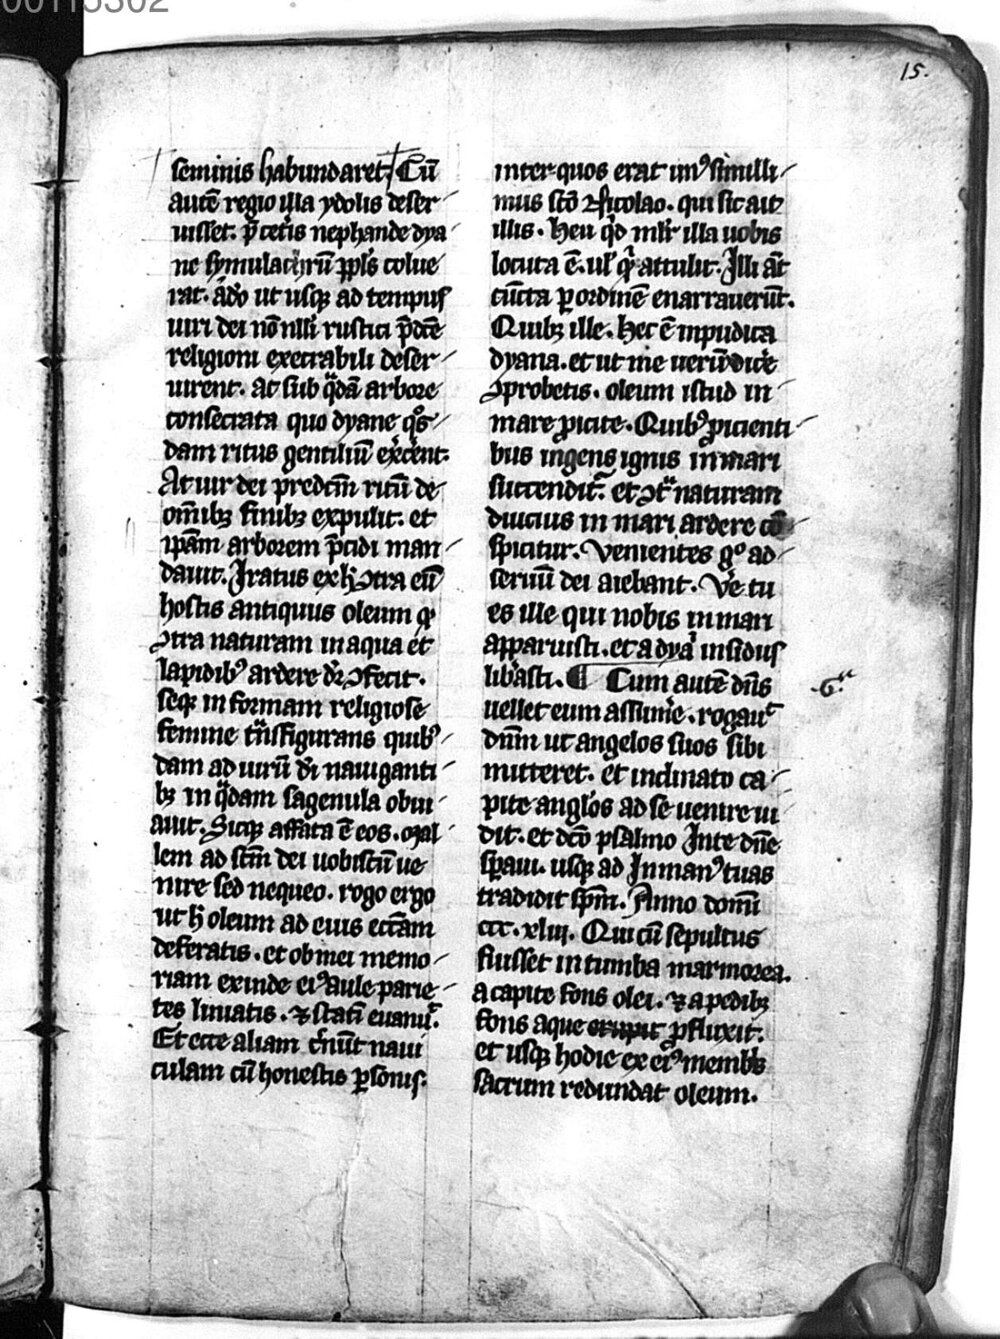 00115302
15.
seminis habundaret. Cū
autē regio illa ydolis deser
uisset. p̄ cet̄is nephande dya
ne symulacrū ꝓpl's colue
rat. adō ut usqꝫ ad tempus
uiri dei nōnlli rustici p̄dc̄e
religioni execrabili deser
uirent. ac sub q̄dā arbore
consecrata quo dyane q̊s
dam ritus gentiliū exc̄ent.
At uir dei predc̄m ritū de
om̄ibꝫ finibꝫ expulit. et
ip̄am arborem p̄cidi man
dauit. Iratus ex h̄ ꝯtra eū
hostis antiquus oleum qđ
ꝯtra naturam in aqua et
lapidibꝰ ardere dr̄ ꝯfecit.
seqꝫ in formam religiose
femine tn̄sfigurans quibꝰ
dam ad uirū dī nauiganti
bꝫ in q̄dam sagenula obui
auit. Sicqꝫ affata ē eos. mal
lem ad sc̄m dei uobiscū ue
nire sed nequeo. rogo ergo
ut h̄ oleum ad eius ecc̄am
deferatis. et ob mei memo
riam exinde eiꝰ aule parie
tes liniatis. ⁊ statī euanuͭ.
Et ecce aliam c̄nūt naui
culam cū honestis ꝑsonis.
inter quos erat unꝰ simili
mus sc̄o Nicolao. qui sic ait
illis. Heu qͥd mlr̄ illa uobis
locuta ē. ul' qͥ attulit. Illi āt
cūcta ꝑ ordinē enarrauerūt.
Quibꝫ ille. Hec ē inpudica
dyana. et ut me uerū dic̄e
ꝯprobetis. oleum istud in
mare ꝓicite. Quibꝰ ꝓicienti
bus ingens ignis in mari
succendit̄. et ꝯͭ naturam
diucius in mari ardere cō
spicitur. Venientes gͦ ad
seruū dei aiebant. Ve̅ tu
es ille qui nobis in mari
apparuisti. et a dyaͤ insidiis
lib̄asti. ¶ Cum autē dn̄s
uellet eum assum̄e. rogauͭ
dn̄m ut angelos suos sibi
mitteret. et inclinato ca
pite angl̄os ad se uenire ui
dit. et dc̄o psalmo In te dn̄e
sꝑaui. usqꝫ ad In manꝰ tuas
tradidit sp̄m. Anno domī
ccc. xliii. Qui cū sepultus
fuisset in tumba marmorea.
a capite fons olei. ⁊ a pedibꝫ
fons aque erupit ꝓfluxit.
et usqꝫ hodie ex eiꝰ membͥs
sacrum redundat oleum.